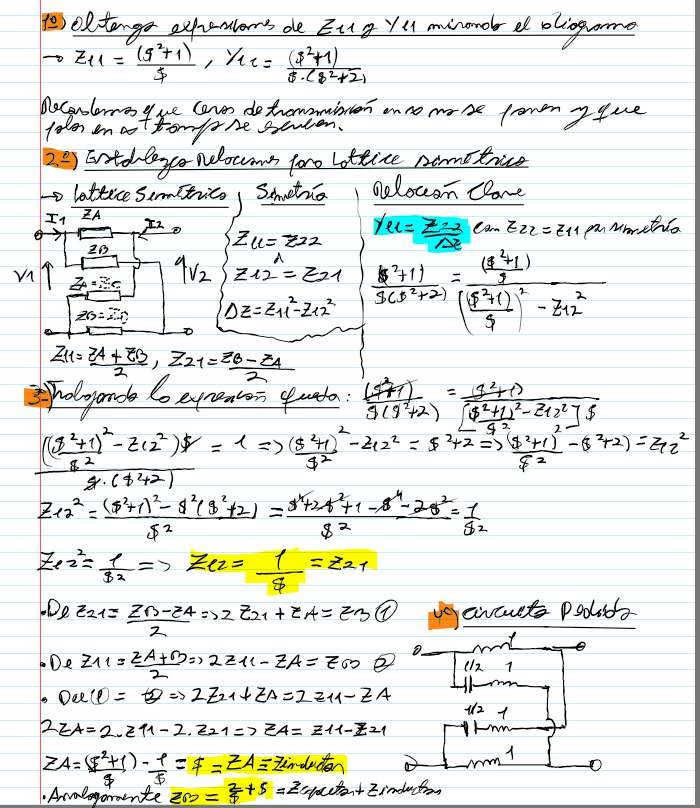 1º) Obtengo expresiones de Z11 y Y11 mirando el diagrama
→ Z11 = ($²+1)/$ , Y11 = ($²+1)/$.($²+2)
Recordemos que ceros de transmisión en no se ponen y que
polos en se
2º) Establezco Relaciones para Lattice simétrico
→ Lattice Simétrico
Simetría
Relación Clave
I1 ZA I2
ZB
V1 V2
ZA =
ZB =
Z11 = ZA + ZB/2 , Z21 = ZB - ZA/2
Z11 = Z22
Z12 = Z21
ΔZ = Z11² - Z12²
Y11 = Z22/ΔZ con Z22 = Z11 por simetría
($²+1)/$($²+2) = ($²+1)/$ / (($²+1)/$)² - Z12²
3-) Trabajando la expresión queda: ($²+1)/$($²+2) = ($²+1)/[($²+1)²/$² - Z12²]$
(($²+1)²/$² - Z12²)$/$.($²+2) = 1 => ($²+1)²/$² - Z12² = $²+2 => ($²+1)²/$² - ($²+2) = Z12²
Z12² = ($²+1)² - $²($²+2)/$² = $⁴+2$²+1-$⁴-2$²/$² = 1/$²
Z12² = 1/$² => Z12 = 1/$ = Z21
• De Z21 = ZB - ZA/2 => 2 Z21 + ZA = ZB ①
• De Z11 = ZA + B/2 => 2Z11 - ZA = ZB ②
• De ① = ② => 2Z21 + ZA = 2Z11 - ZA
2ZA = 2.Z11 - 2.Z21 => ZA = Z11 - Z21
ZA = ($²+1)/$ - 1/$ = $ = ZA = Zinductor
• Analogamente ZB = 2/$ + $ = Zcapacitor + Zinductor
4º) Circuito Pedido
1
1/2 1
1/2 1
1